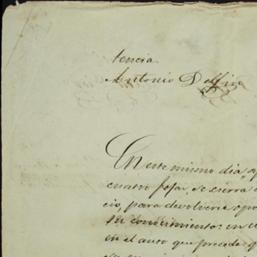 tencia
Antonio Delfin
En este mismo dia, a
cuatro fojas, se cierra
cio, para devolverse
su conocimiento: en
en el auto que precede